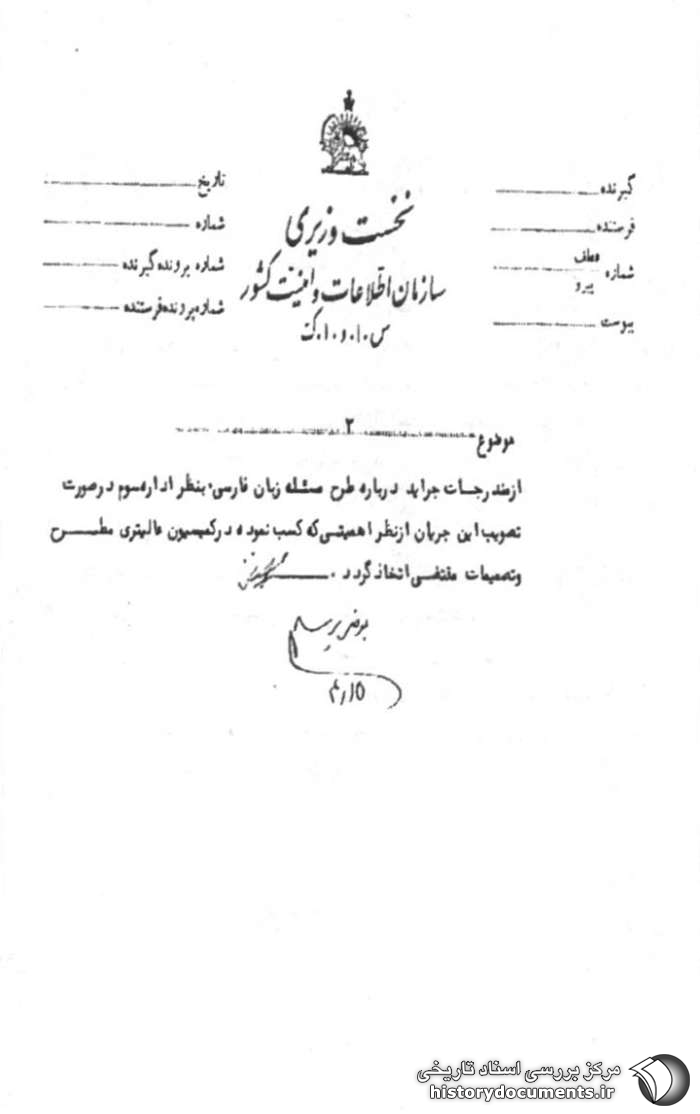 نخست وزیری
سازمان اطلاعات و امنیت کشور
س.ا.و.ا.ک
گیرنده
فرستنده
شماره عطف پیرو
پیوست
تاریخ
شماره
شماره پرونده گیرنده
شماره پرونده فرستنده
موضوع ۲
ازمندرجات جراید درباره طرح مسئله زبان فارسی، بنظر اداره سوم درصورت
تصویب این جریان ازنظر اهمیتی که کسب نموده درکمیسیون عالیتری مطرح
وتصمیمات مقتضی اتخاذ گردد.
بعرض برسد
۴/۱۵
مرکز بررسی اسناد تاریخی
historydocuments.ir